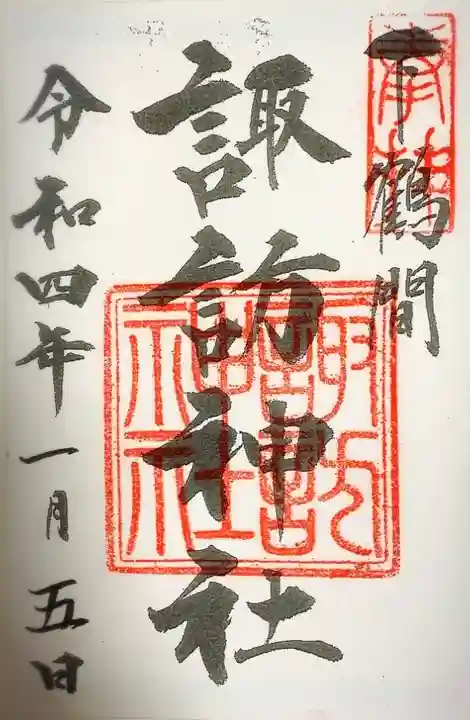 奉拝
下鶴間
諏訪神社
諏訪神社
令和四年一月五日